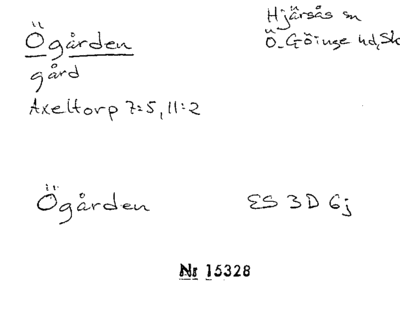 Ögården
Hjärsås sn
Ö. Göinge hd, Sk
gård
Axeltorp 7:5, 11:2
Ögården
ES 3D 6j
Nr 15328